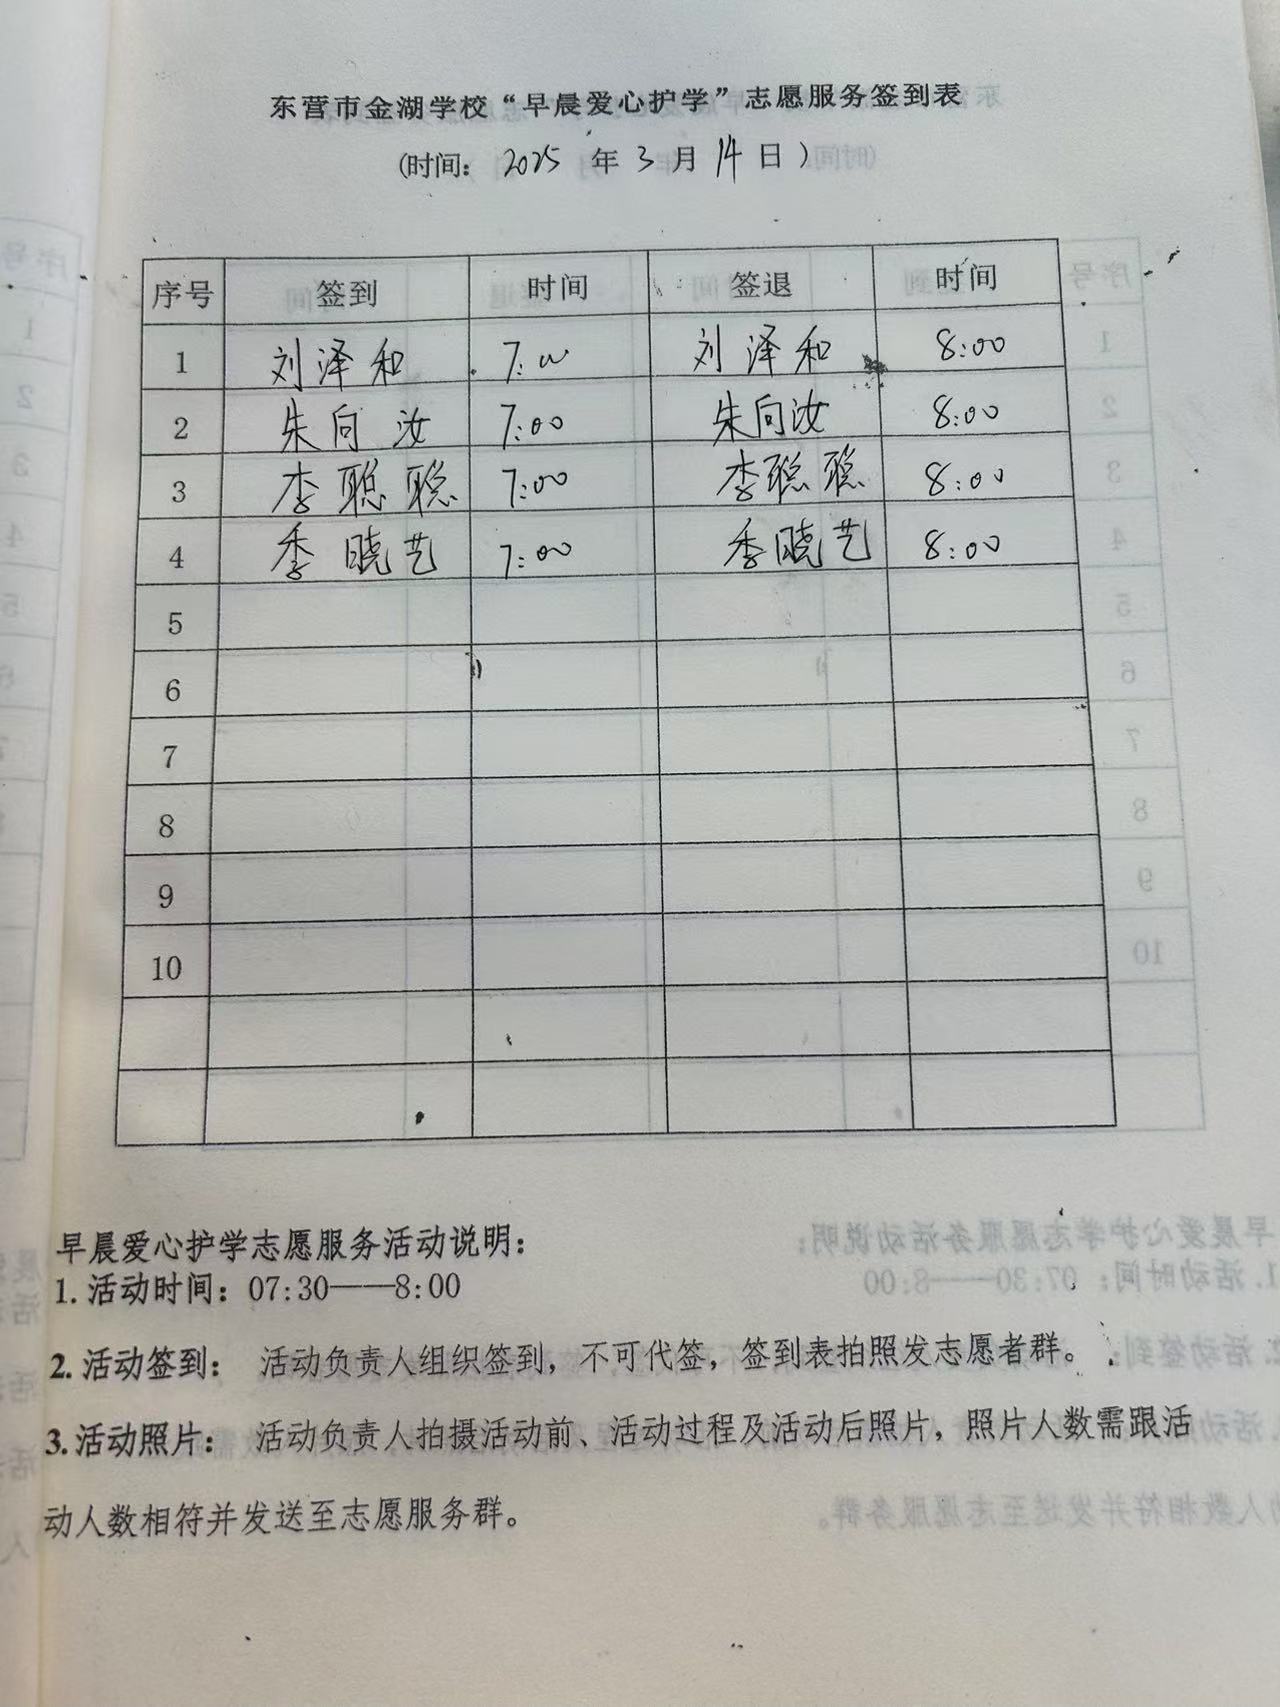 东营市金湖学校“早晨爱心护学”志愿服务签到表
(时间: 2025 年 3 月 14 日)
序号 签到 时间 签退 时间
1 刘泽和 7:00 刘泽和 8:00
2 朱向汝 7:00 朱向汝 8:00
3 李聪聪 7:00 李聪聪 8:00
4 季晓艺 7:00 季晓艺 8:00
5
6
7
8
9
10
早晨爱心护学志愿服务活动说明:
1.活动时间: 07:30——8:00
2.活动签到: 活动负责人组织签到, 不可代签, 签到表拍照发志愿者群。
3.活动照片: 活动负责人拍摄活动前、活动过程及活动后照片, 照片人数需跟活
动人数相符并发送至志愿服务群。